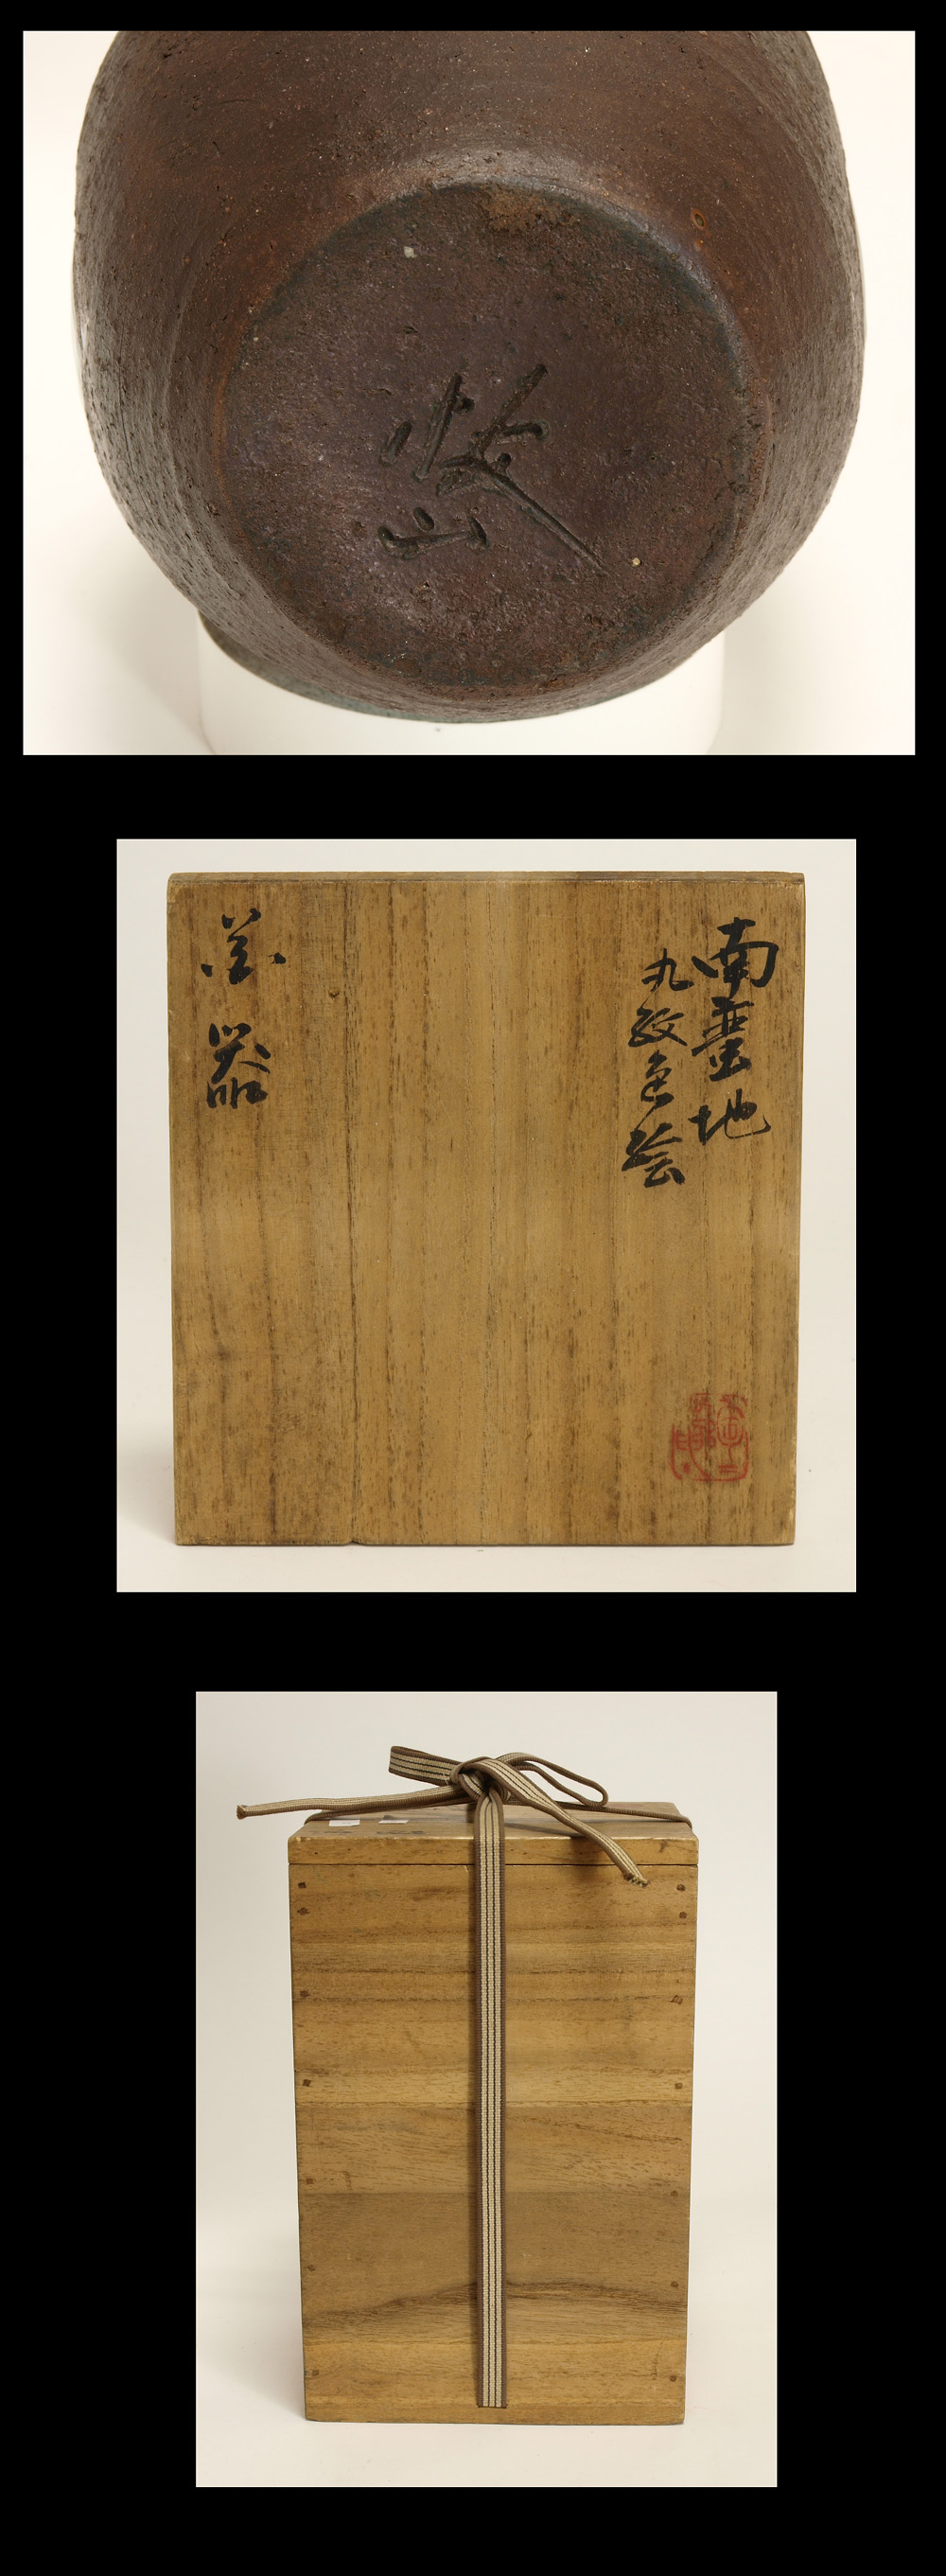 山
南蛮地
丸紋色絵
花器